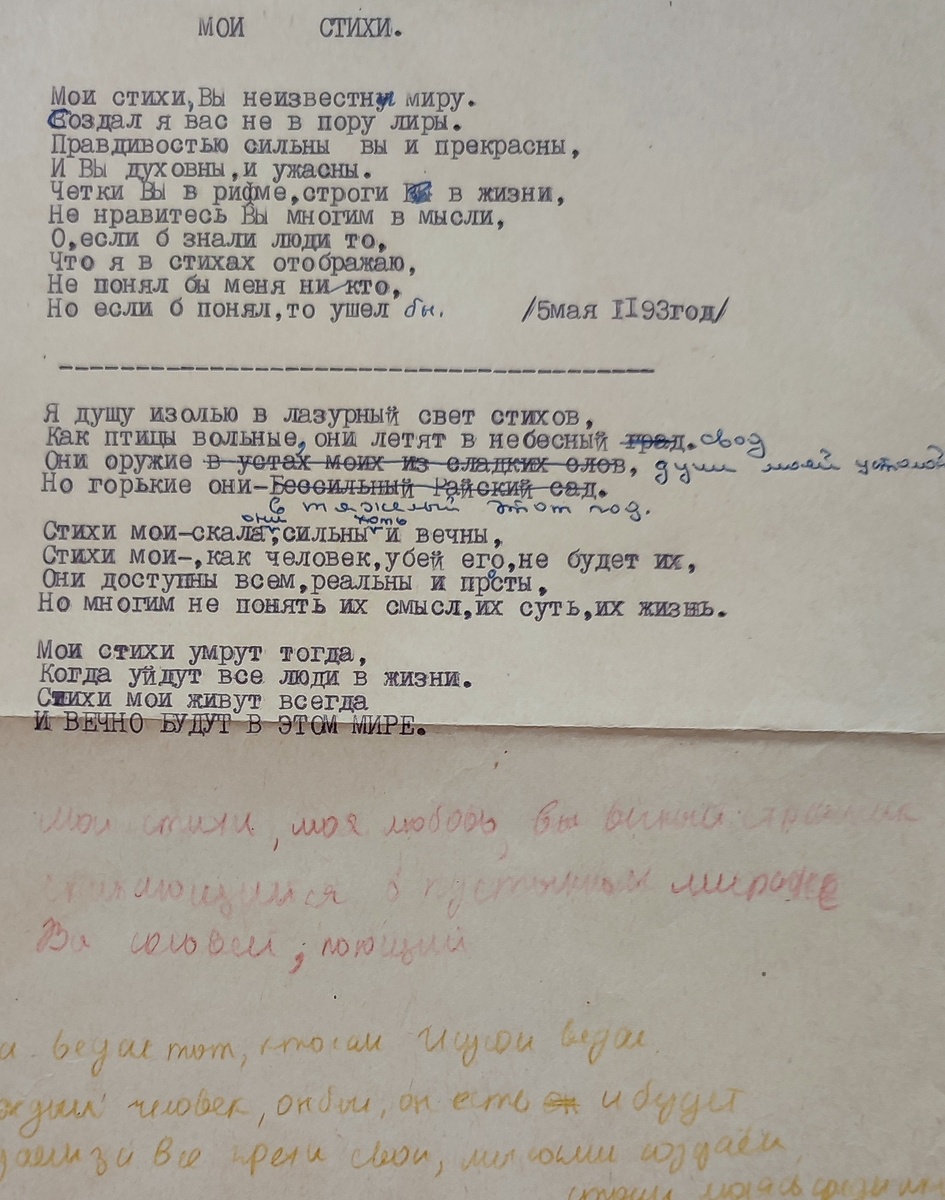 МОИ СТИХИ.
Мои стихи,Вы неизвестны миру.
Создал я вас не в пору лиры.
Правдивостью сильны вы и прекрасны,
И Вы духовны,и ужасны.
Четки Вы в рифме,строги в жизни,
Не нравитесь Вы многим в мысли,
О,если б знали люди то,
Что я в стихах отображаю,
Не понял бы меня ни кто,
Но если б понял,то ушел бы. /5мая II93год/
Я душу изолью в лазурный свет стихов,
Как птицы вольные, они летят в небесный град. свод
Они оружие в устах моих из сладких слов, души моей
Но горькие они-Бессильный Райский сад.
в тяжелый этот год.
они хоть
Стихи мои-скала,сильны и вечны,
Стихи мои-,как человек,убей его,не будет их,
Они доступны всем,реальны и просты,
Но многим не понять их смысл,их суть,их жизнь.
Мои стихи умрут тогда,
Когда уйдут все люди в жизни.
Стихи мои живут всегда
И ВЕЧНО БУДУТ В ЭТОМ МИРЕ.
Мои стихи, моя любовь, вы вечный странник
в пустынных мираже
Вы соловей, поющий
тот, кто сам
человек, он был, он есть он и будет
за все грехи свои, создаём